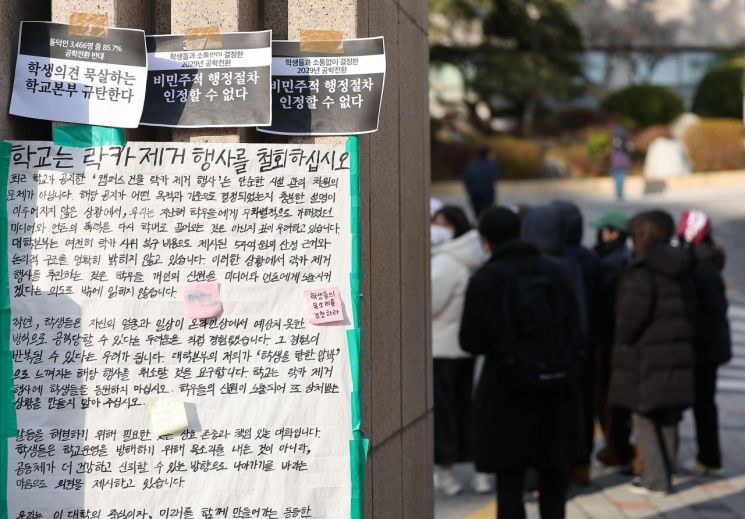 동덕인 3,466명 중 85.7%
공학전환 반대
학생의견 묵살하는
학교본부 규탄한다
학생들과 소통없이 결정한
2029년 공학전환
비민주적 행정절차
인정할 수 없다
학생들과 소통없이 결정한
2029년 공학전환
비민주적 행정절차
인정할 수 없다
학교는 락카 제거 행사를 철회하십시오
최근 학교가 공지한 '캠퍼스 건물 락카 제거 행사'는 단순한 시설 관리 차원의
문제가 아닙니다. 해당 공지가 어떤 목적과 기준으로 결정되었는지 충분한 설명이
이루어지지 않은 상황에서, 우리는 지난해 학우들에게 무차별적으로 가해졌던
미디어와 언론의 폭력을 다시 학내로 끌어오는 것은 아닌지 깊이 우려하고 있습니다.
대학본부는 여전히 락카 시위 복구 비용으로 제시된 54억 원의 산정 근거와
논리적 구조를 명확히 밝히지 않고 있습니다. 이러한 상황에서 락카 제거
행사를 추진하는 것은 학우들 개인의 신원을 미디어와 언론에게 노출시키
겠다는 의도로 밖에 읽히지 않습니다.
작년, 학생들은 자신의 얼굴과 일상이 온라인상에서 예상치 못한
방식으로 공격당할 수 있다는 두려움을 직접 경험했습니다. 그 경험이
반복될 수 있다는 우려가 큽니다. 대학본부의 저의가 "학생을 향한 압박"
으로 느껴지는 해당 행사를 취소할 것을 요구합니다. 학교는 락카 제거
행사에 학생들을 동원하지 마십시오. 학우들의 신원이 노출되어 또 상처받는
상황을 만들지 말아 주십시오.
갈등을 해결하기 위해 필요한 것은 상호 존중과 책임 있는 대화입니다.
학생들은 학교운영을 방해하기 위해 목소리를 내는 것이 아니라,
공동체가 더 건강하고 신뢰할 수 있는 방향으로 나아가기를 바라는
마음으로 의견을 제시하고 있습니다.
우리는 이 대학의 중심이자, 미래를 함께 만들어가는 동등한
학생들의
목소리를
경청하라